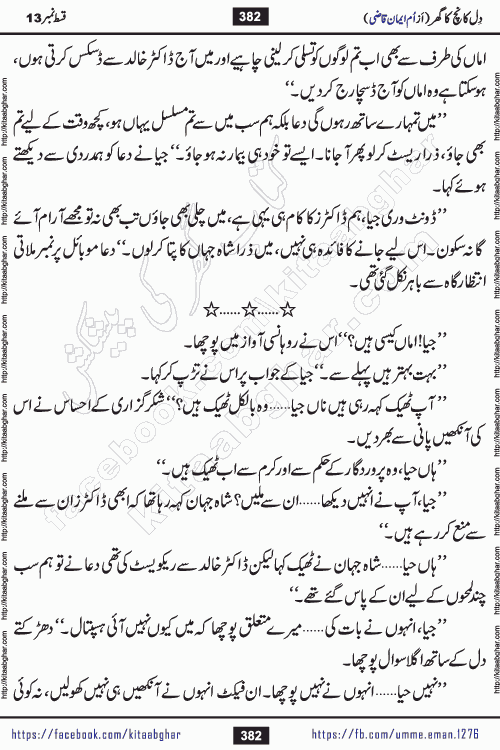 قسط نمبر 13
382
دِل کانچ کا گھر (از اُم ایمان قاضی)
اماں کی طرف سے بھی اب تم لوگوں کو تسلی کر لینی چاہیے اور میں آج ڈاکٹر خالد سے ڈسکس کرتی ہوں،
ہوسکتا ہے وہ اماں کو آج ڈسچارج کر دیں۔‘‘
’’میں تمہارے ساتھ رہوں گی دعا بلکہ ہم سب میں سے تم مسلسل یہاں ہو، کچھ وقت کے لیے تم
بھی جاؤ، ذرا ریسٹ کر لو پھر آ جانا۔ ایسے تو خود ہی بیمار نہ ہو جاؤ۔‘‘ جیا نے دعا کو ہمدردی سے دیکھتے
ہوئے کہا۔
’’ڈونٹ وری جیا، ہم ڈاکٹرز کا کام ہی یہی ہے، میں چلی بھی جاؤں تب بھی نہ تو مجھے آرام آئے
گا نہ سکون۔ اس لیے جانے کا فائدہ ہی نہیں، میں ذرا شاہ جہاں کا پتا کر لوں۔‘‘ دعا موبائل پر نمبر ملاتی
انتظار گاہ سے باہر نکل گئی تھی۔
☆......☆......☆
’’جیا! اماں کیسی ہیں؟‘‘ اس نے روہانسی آواز میں پوچھا۔
’’بہت بہتر ہیں پہلے سے۔‘‘ جیا کے جواب پر اس نے تڑپ کر کہا۔
’’آپ ٹھیک کہہ رہی ہیں ناں جیا......وہ بالکل ٹھیک ہیں؟‘‘ شکر گزاری کے احساس نے اس
کی آنکھیں پانی سے بھر دیں۔
’’ہاں حیا، وہ پروردگار کے حکم سے اور کرم سے اب ٹھیک ہیں۔‘‘
’’جیا، آپ نے انہیں دیکھا......ان سے ملیں؟ شاہ جہان کہہ رہا تھا کہ ابھی ڈاکٹرز ان سے ملنے
سے منع کر رہے ہیں۔‘‘
’’ہاں حیا......شاہ جہان نے ٹھیک کہا لیکن ڈاکٹر خالد سے ریکویسٹ کی تھی دعا نے تو ہم سب
چند لمحوں کے لیے ان کے پاس گئے تھے۔‘‘
’’جیا، انہوں نے بات کی......میرے متعلق پوچھا کہ میں کیوں نہیں آئی ہسپتال۔‘‘ دھڑکتے
دل کے ساتھ اگلا سوال پوچھا۔
’’نہیں حیا......انہوں نے نہیں پوچھا۔ ان فیکٹ انہوں نے آنکھیں ہی نہیں کھولیں، نہ کوئی
https://facebook.com/kitaabghar
382
https://fb.com/umme.eman.1276
http://kitaabghar.com
کتاب گھر کی پیشکش
kitaabghar.com
facebook.com/kitaabghar